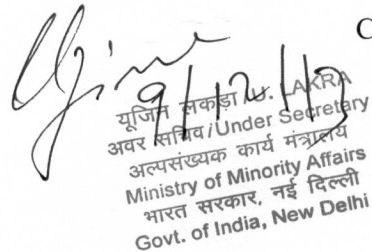 C
Ujine
9/12/13
यूजिन लकड़ा / U. LAKRA
अवर सचिव/Under Secretary
अल्पसंख्यक कार्य मंत्रालय
Ministry of Minority Affairs
भारत सरकार, नई दिल्ली
Govt. of India, New Delhi